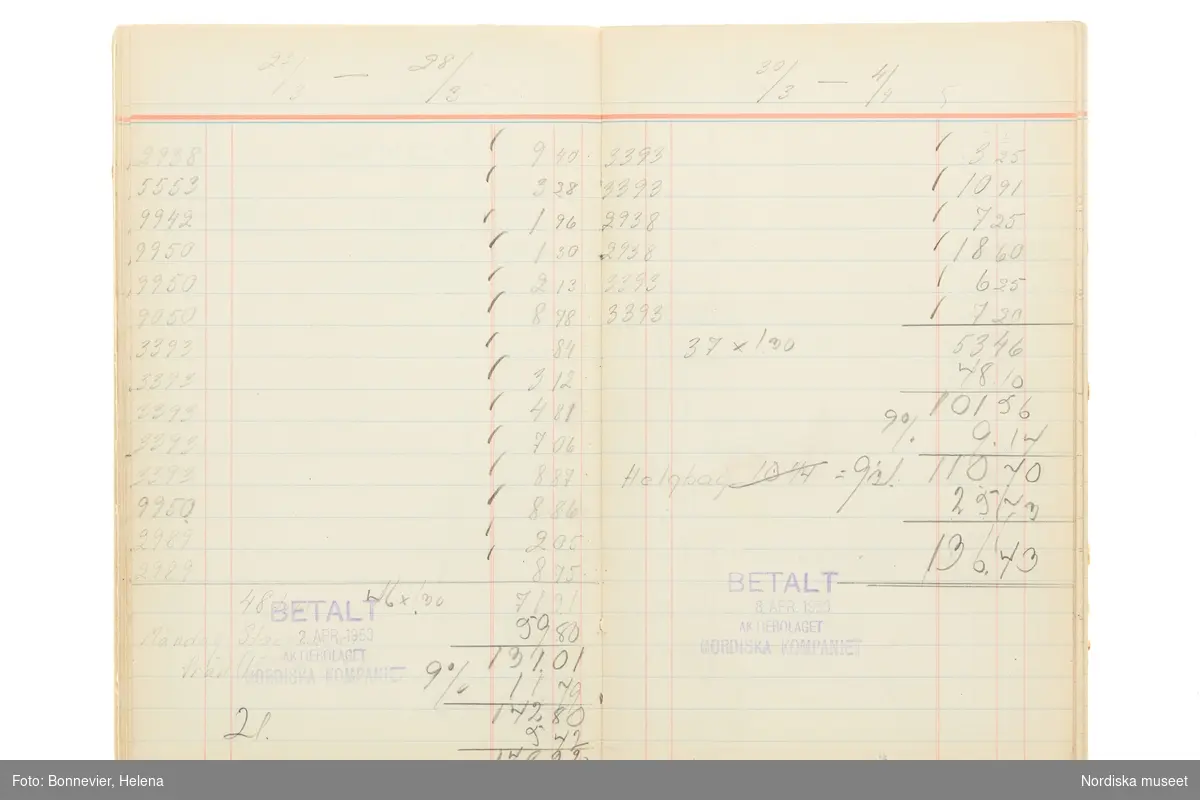 28/3
2938 9 40
5553 3 28
9942 1 96
9950 1 30
9950 2 13
9950 8 78
3393 84
5383 3 12
3393 4 81
3393 7 06
3393 8 87
9950 8 86
2989 2 05
2989 8 75
46 x 1.30 71 21
BETALT 59 80
2. APR. 1953
AKTIEBOLAGET 131.01
NORDISKA KOMPANIET
9% 11 79
142 80
21. 5 72
30/3 — 4/4
3393 3 25
3393 10 91
2938 7 25
2938 18 60
3393 6 25
3393 7 20
37 x 1 30 53 46
48 10
101 56
9% 9.14
110 70
25 73
136.43
BETALT
8. APR. 1953
AKTIEBOLAGET
NORDISKA KOMPANIET
Foto: Bonnevier, Helena
Nordiska museet